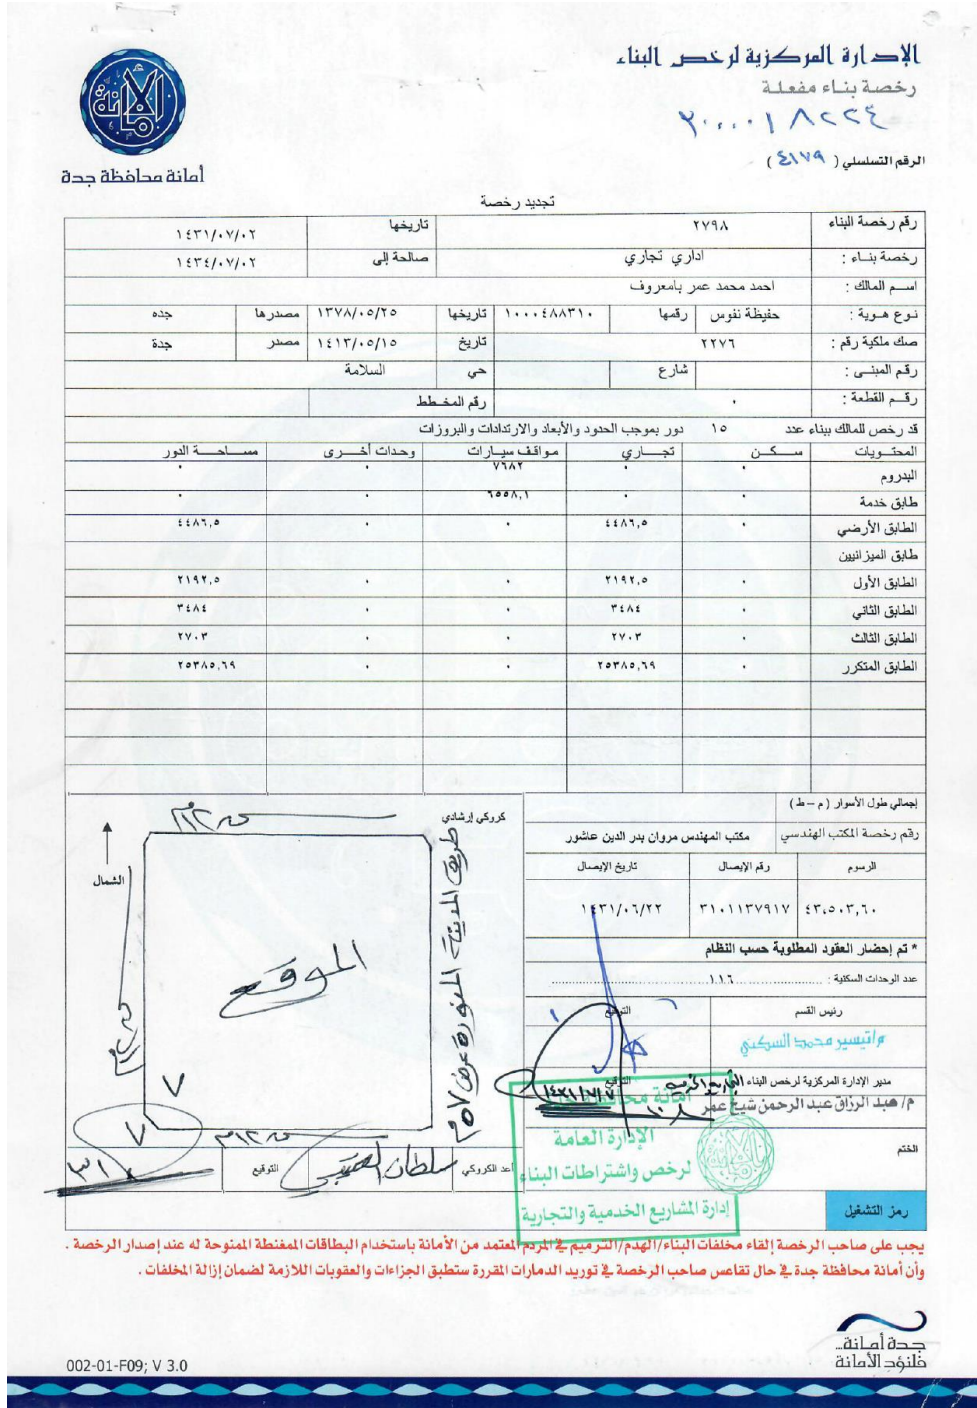 الإدارة المركزية لرخص البناء
رخصة بناء مفعلة
٣٠٠٠٠١٨٢٢٤
الرقم التسلسلي ( ٤١٧٩ )
أمانة محافظة جدة
تجديد رخصة
رقم رخصة البناء ٢٧٩٨ تاريخها ١٤٣١/٠٧/٠٢
رخصة بناء : اداري تجاري صالحة إلى ١٤٣٤/٠٧/٠٢
اسم المالك : احمد محمد عمر بامعروف
نوع هوية : حفيظة نفوس رقمها ١٠٠٠٤٨٨٣١٠ تاريخها ١٣٧٨/٠٥/٢٥ مصدرها جده
صك ملكية رقم : ٢٢٧٦ تاريخ ١٤١٣/٠٥/١٥ مصدر جدة
رقم المبنى : شارع حي السلامة
رقم القطعة : ٠ رقم المخطط
قد رخص للمالك ببناء عدد ١٥ دور بموجب الحدود والأبعاد والارتدادات والبروزات
المحتويات سكن تجاري مواقف سيارات وحدات أخرى مساحة الدور
البدروم ٠ ٠ ٧٦٨٢ ٠ ٠
طابق خدمة ٠ ٠ ٦٥٥٨,١ ٠ ٠
الطابق الأرضي ٠ ٤٤٨٦,٥ ٠ ٠ ٤٤٨٦,٥
طابق الميزانيين
الطابق الأول ٠ ٢١٩٢,٥ ٠ ٠ ٢١٩٢,٥
الطابق الثاني ٠ ٣٤٨٤ ٠ ٠ ٣٤٨٤
الطابق الثالث ٠ ٢٧٠٣ ٠ ٠ ٢٧٠٣
الطابق المتكرر ٠ ٢٥٣٨٥,٦٩ ٠ ٠ ٢٥٣٨٥,٦٩
إجمالي طول الأسوار ( م – ط )
رقم رخصة المكتب الهندسي مكتب المهندس مروان بدر الدين عاشور
الرسوم رقم الإيصال تاريخ الإيصال
٤٣,٥٠٣,٦٠ ٣١٠١١٣٧٩١٧ ١٤٣١/٠٦/٢٢
* تم إحضار العقود المطلوبة حسب النظام
عدد الوحدات السكنية : ١١٦
رئيس القسم التوقيع
م/تيسير محمد السكني
مدير الإدارة المركزية لرخص البناء التوقيع
م/ عبد الرزاق عبد الرحمن شيخ عمر
الختم
أمانة محافظة جدة
الإدارة العامة
لرخص واشتراطات البناء
إدارة المشاريع الخدمية والتجارية
كروكي إرشادي
الشمال
الموقع
طريق المدينة المنورة عرض ٥٧م
أعد الكروكي سلطان العتيبي التوقيع
رمز التشغيل
يجب على صاحب الرخصة إلقاء مخلفات البناء/الهدم/الترميم في المردم المعتمد من الأمانة باستخدام البطاقات الممغنطة الممنوحة له عند إصدار الرخصة .
وأن أمانة محافظة جدة في حال تقاعس صاحب الرخصة في توريد الدمارات المقررة ستطبق الجزاءات والعقوبات اللازمة لضمان إزالة المخلفات .
جدة أمانة..
فلنؤد الأمانة
002-01-F09; V 3.0